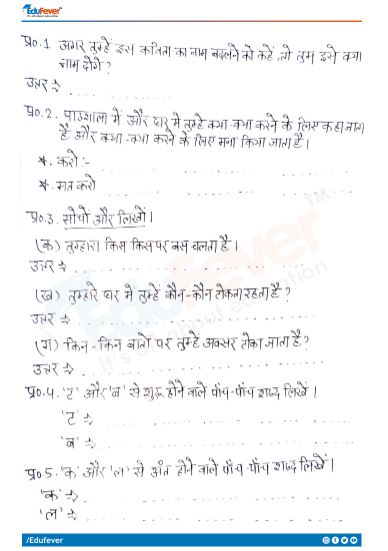 Edufever
It's all about education
प्र०.1 अगर तुम्हें इस कविता का नाम बदलने को कहें, तो तुम इसे क्या
नाम दोगे?
उत्तर →
प्र०.2. पाठशाला में और घर में तुम्हें क्या-क्या करने के लिए कहा जाता
है और क्या-क्या करने के लिए मना किया जाता है।
*. करो :-
*. मत करो
प्र०.3. सोचो और लिखो।
(क) तुम्हारा किस किस पर बस चलता है।
उत्तर →
(ख) तुम्हारे घर में तुम्हें कौन-कौन टोकता रहता है?
उत्तर →
(ग) किन-किन बातों पर तुम्हें अक्सर टोका जाता है?
उत्तर →
प्र०.4. 'ट' और 'ब' से शुरू होने वाले पाँच-पाँच शब्द लिखें।
'ट' →
'ब' →
प्र०.5. 'क' और 'ल' से अंत होने वाले पाँच-पाँच शब्द लिखें।
'क' →
'ल' →
/Edufever